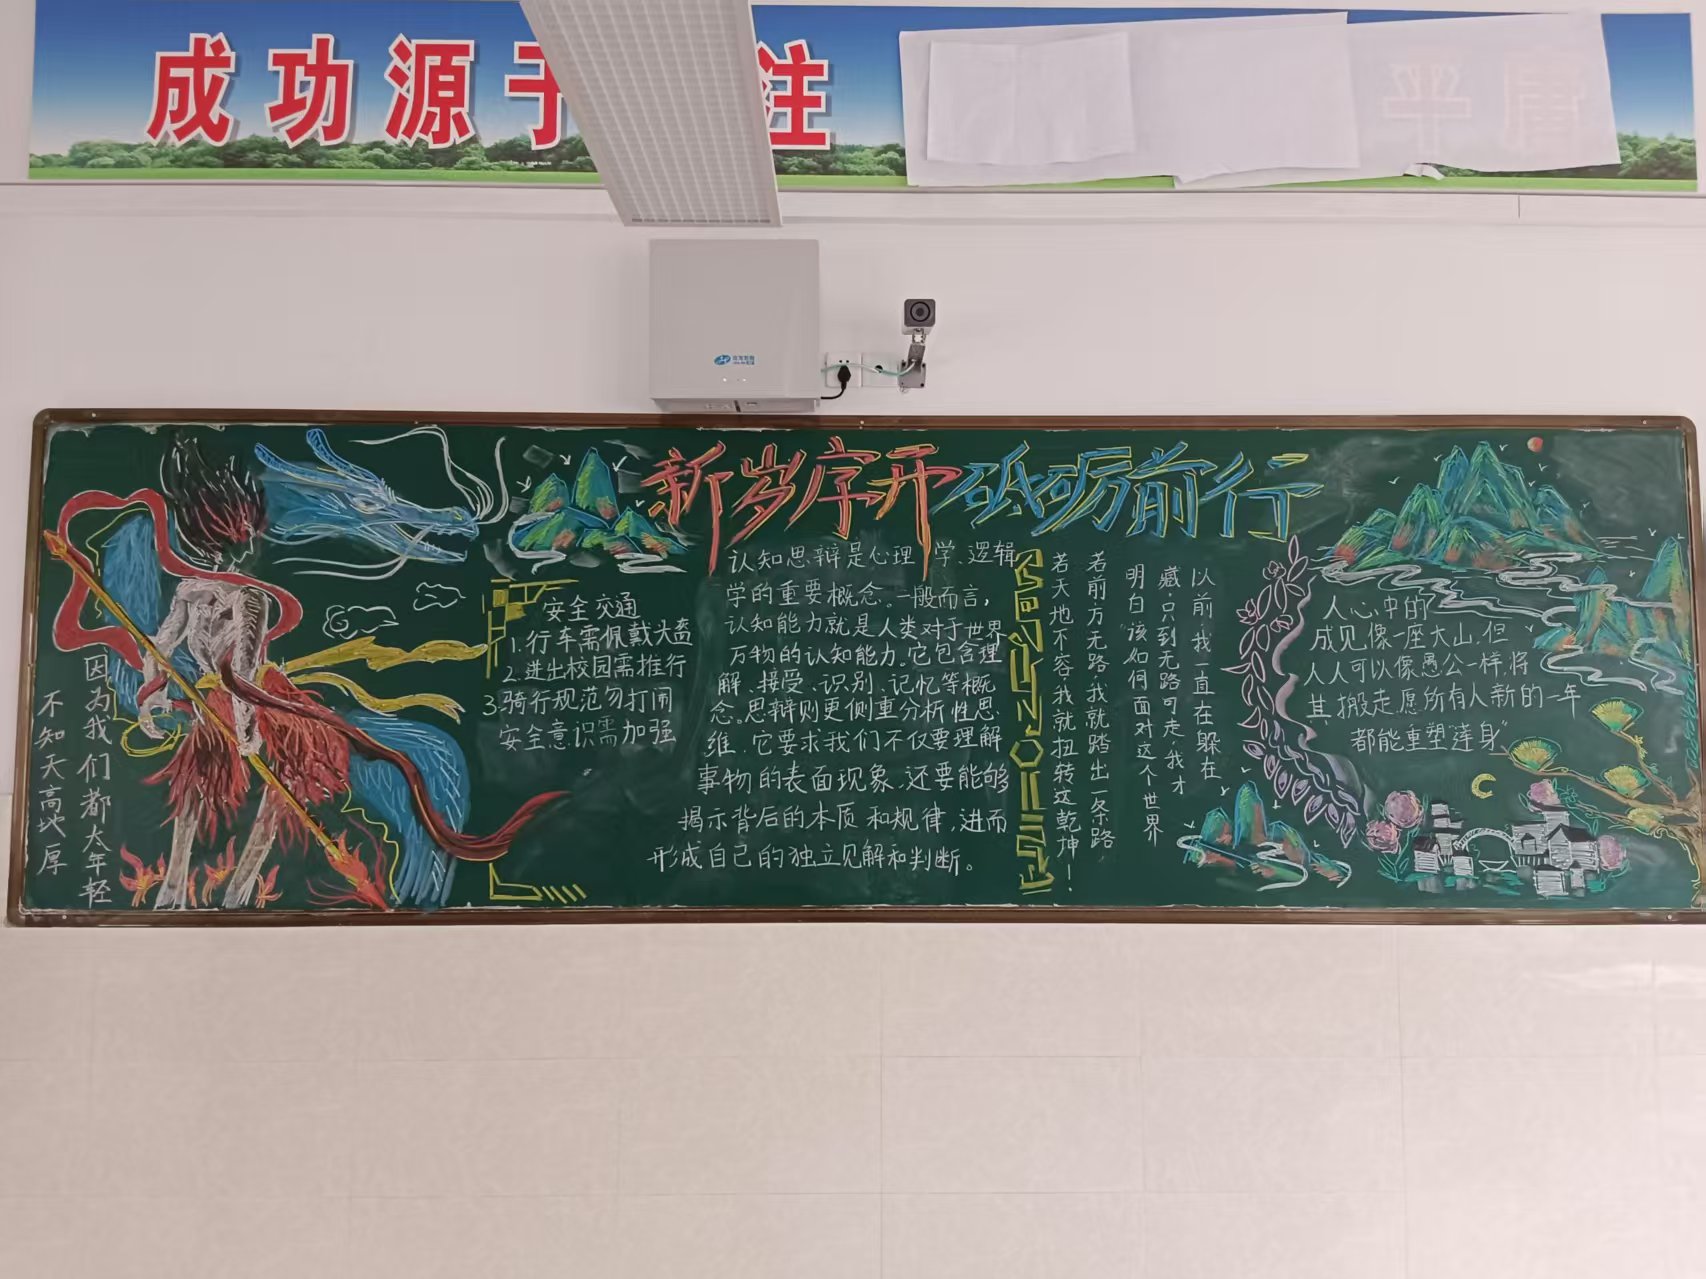 成功源于 注
平庸
新岁序开 砥砺前行
因为我们都太年轻
不知天高地厚
安全交通
1.行车需佩戴头盔
2.进出校园需推行
3.骑行规范勿打闹
安全意识需加强
认知思辩是心理学、逻辑
学的重要概念。一般而言，
认知能力就是人类对于世界
万物的认知能力。它包含理
解、接受、识别、记忆等概
念。思辩则更侧重分析性思
维，它要求我们不仅要理解
事物的表面现象，还要能够
揭示背后的本质和规律，进而
形成自己的独立见解和判断。
以前，我一直在躲
藏，只到无路可走，我才
明白该如何面对这个世界
若前方无路，我就踏出一条路，
若天地不容，我就扭转这乾坤！
人心中的
成见像一座大山，但
人人可以像愚公一样，将
其搬走，愿所有人新的一年
都能重塑“莲身”